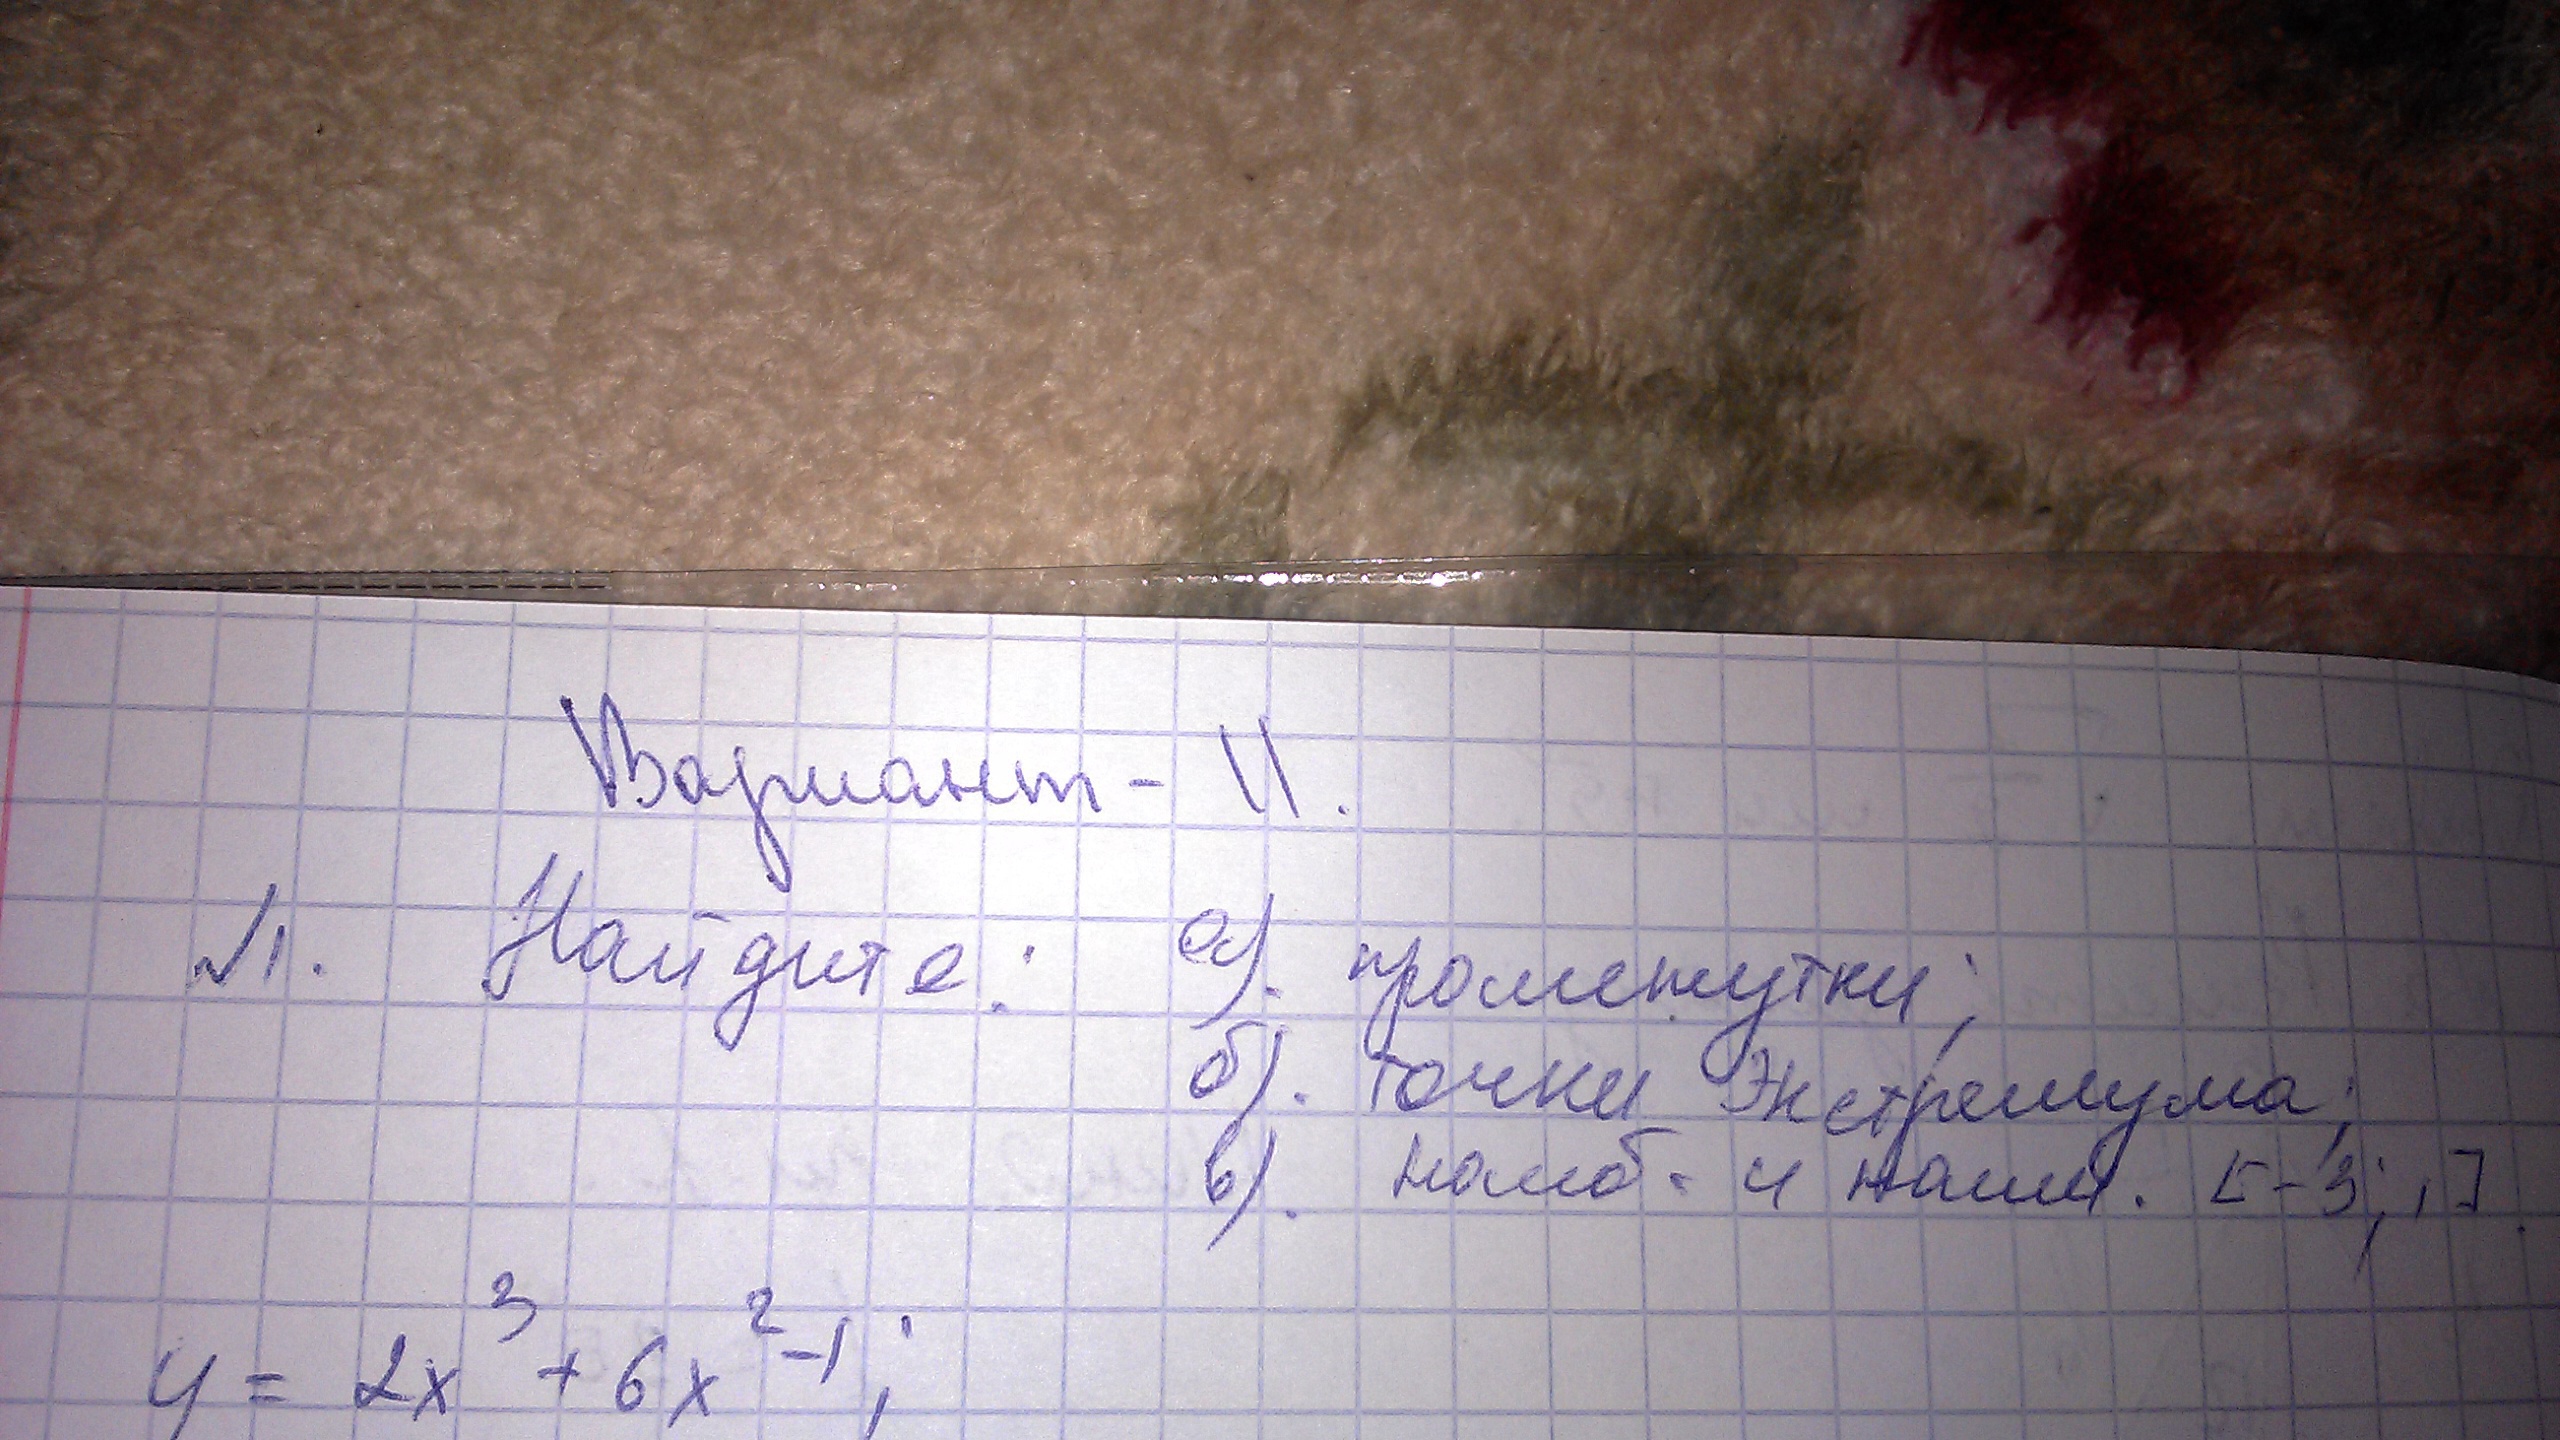 Вариант - II.
№1. Найдите: а). промежутки;
б). точки экстремума;
в). наиб. и наим. [-3; 1].
y = 2x³ + 6x² - 1;